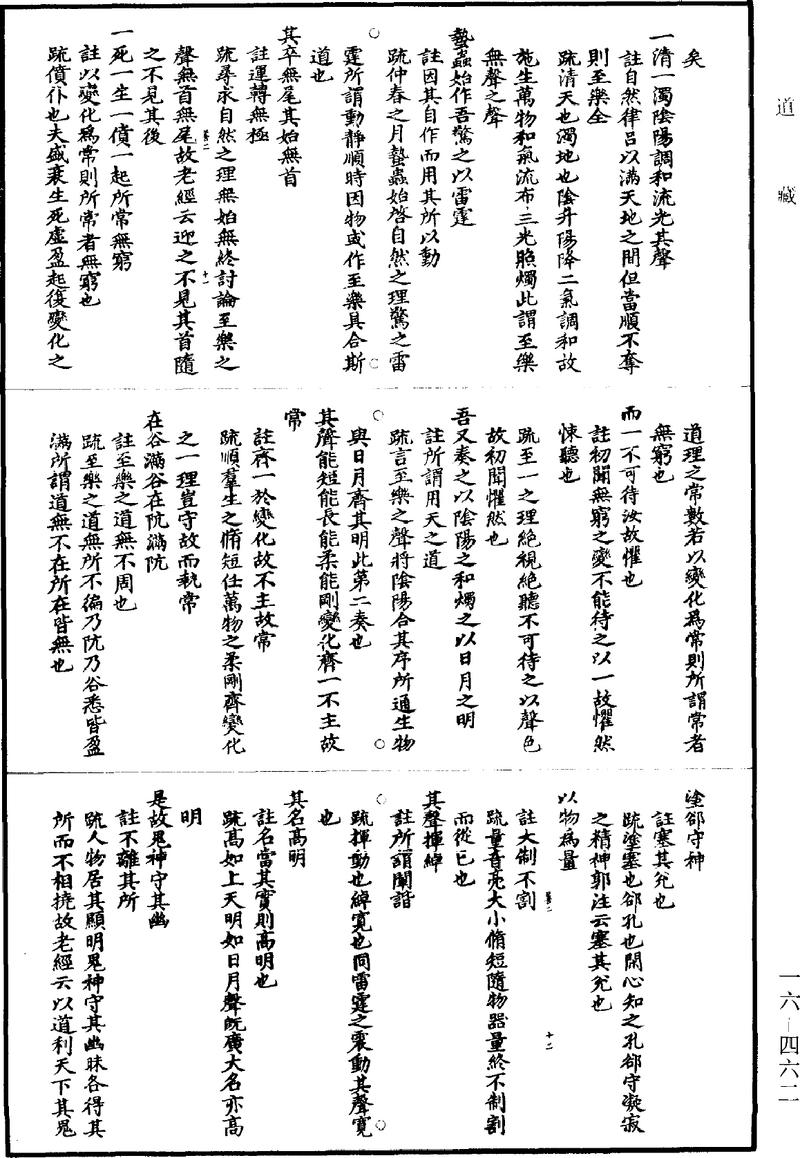 道藏
矣
一清一濁陰陽調和流光其聲
註自然律呂以滿天地之間但當順不奪
則至樂全
疏清天也濁地也陰升陽降二氣調和故
施生萬物和氣流布三光照燭此謂至樂
無聲之聲
蟄蟲始作吾驚之以雷霆
註因其自作而用其所以動
疏仲春之月蟄蟲始啓自然之理驚之雷
霆所謂動靜順時因物或作至樂具合斯
道也
其卒無尾其始無首
註運轉無極
疏尋求自然之理無始無終討論至樂之
聲無首無尾故老經云迎之不見其首隨
之不見其後
一死一生一僨一起所常無窮
註以變化為常則所常者無窮也
疏僨仆也夫盛衰生死虛盈起復變化之
道理之常數若以變化為常則所謂常者
無窮也
而一不可待汝故懼也
註初聞無窮之變不能待之以一故懼然
悚聽也
疏至一之理絕視絕聽不可待之以聲色
故初聞懼然也
吾又奏之以陰陽之和燭之以日月之明
註所謂用天之道
疏言至樂之聲將陰陽合其序所通生物
與日月齊其明此第二奏也
其聲能短能長能柔能剛變化齊一不主故
常
註齊一於變化故不主故常
疏順羣生之脩短任萬物之柔剛齊變化
之一理豈守故而執常
在谷滿谷在阬滿阬
註至樂之道無不周也
疏至樂之道無所不徧乃阬乃谷悉皆盈
滿所謂道無不在所在皆無也
塗郤守神
註塞其兌也
疏塗塞也郤孔也閑心知之孔郤守凝寂
之精神郭注云塞其兌也
以物為量
註大制不割
疏量音亮大小脩短隨物器量終不制割
而從已也
其聲揮綽
註所謂闡諧
疏揮動也綽寬也同雷霆之震動其聲寬
也
其名高明
註名當其實則高明也
疏高如上天明如日月聲既廣大名亦高
明
是故鬼神守其幽
註不離其所
疏人物居其顯明鬼神守其幽昧各得其
所而不相撓故老經云以道利天下其鬼
一六–四六二